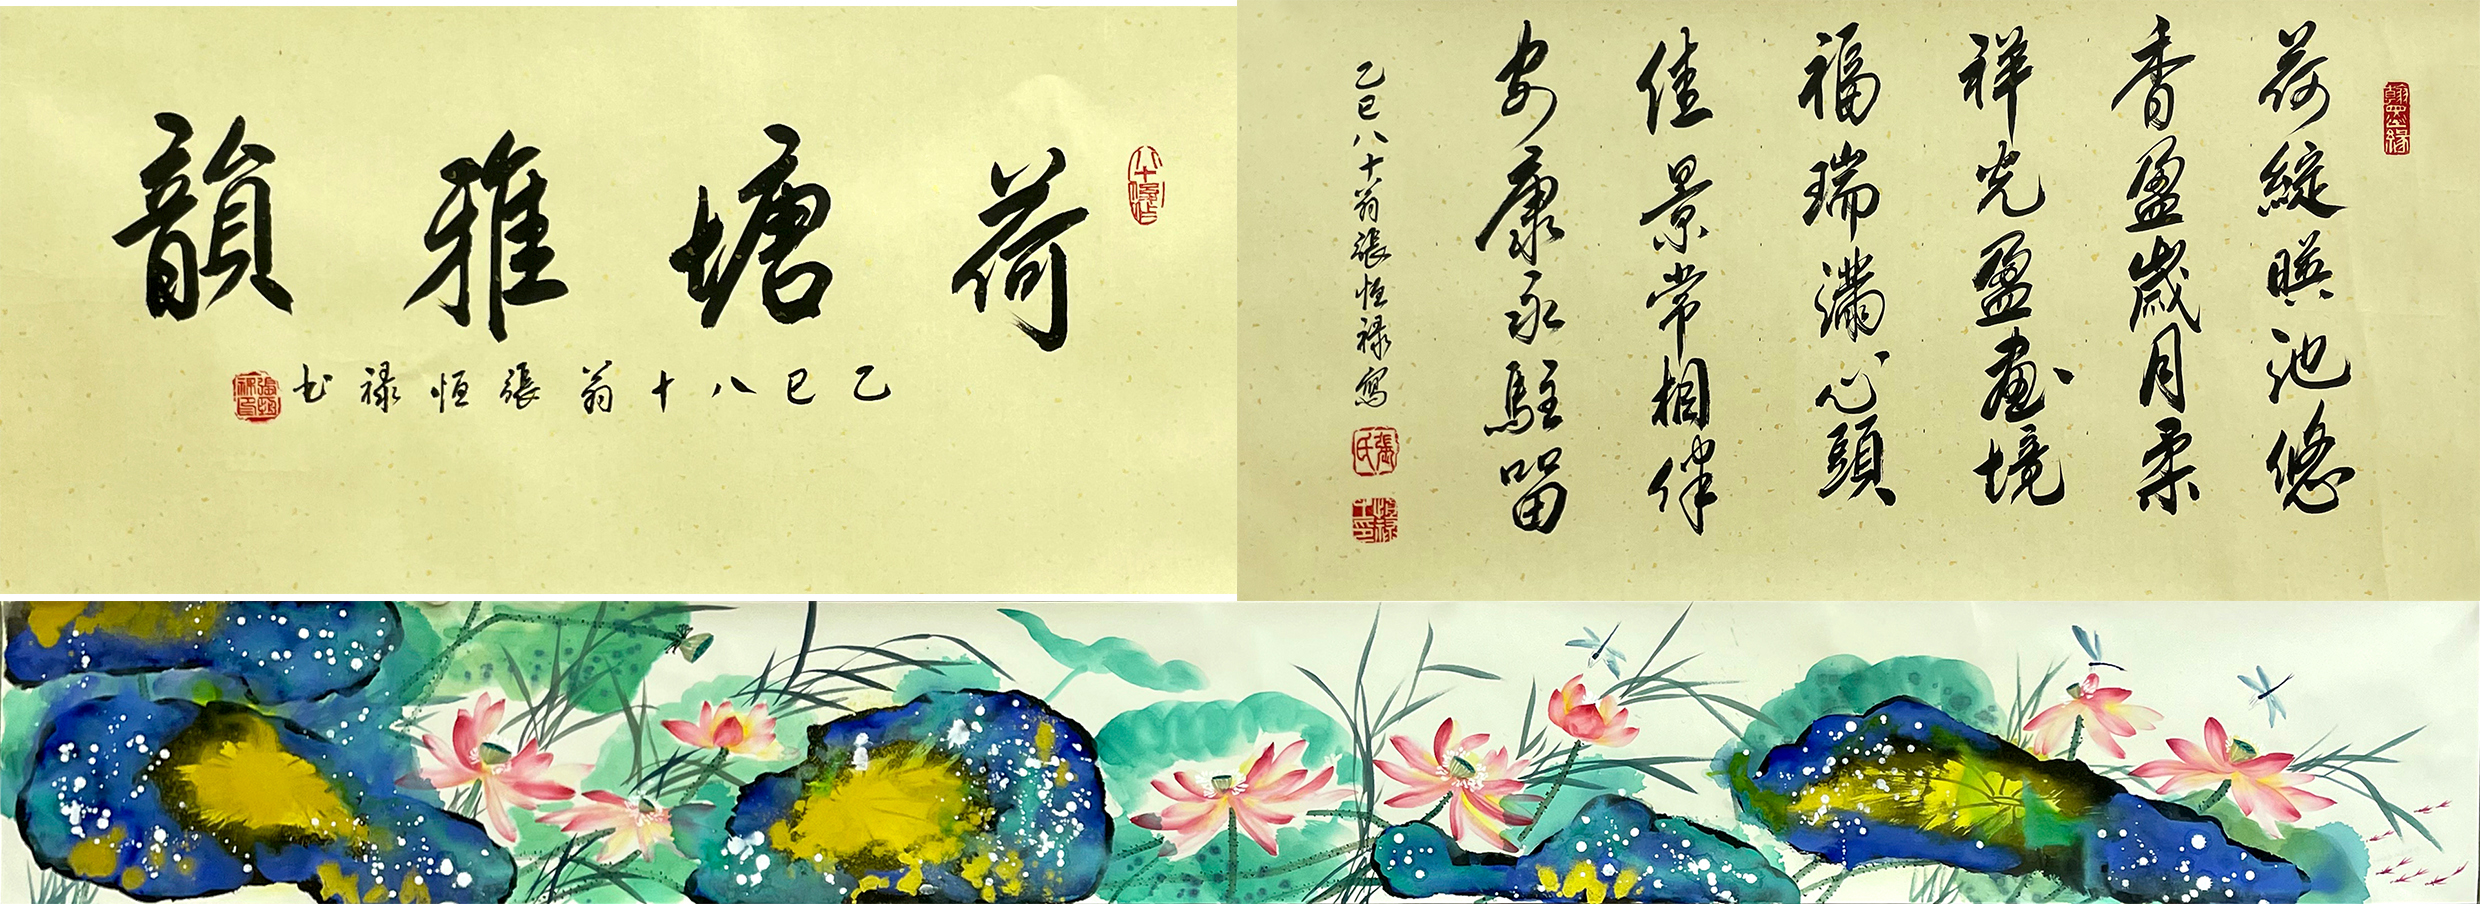 荷塘雅韻
乙巳八十翁張恒禄书
翰墨緣
荷綻暎池悠
香盈歲月柔
祥光盈畫境
福瑞滿心頭
佳景常相伴
安康永駐留
乙巳八十翁張恒禄寫
張氏